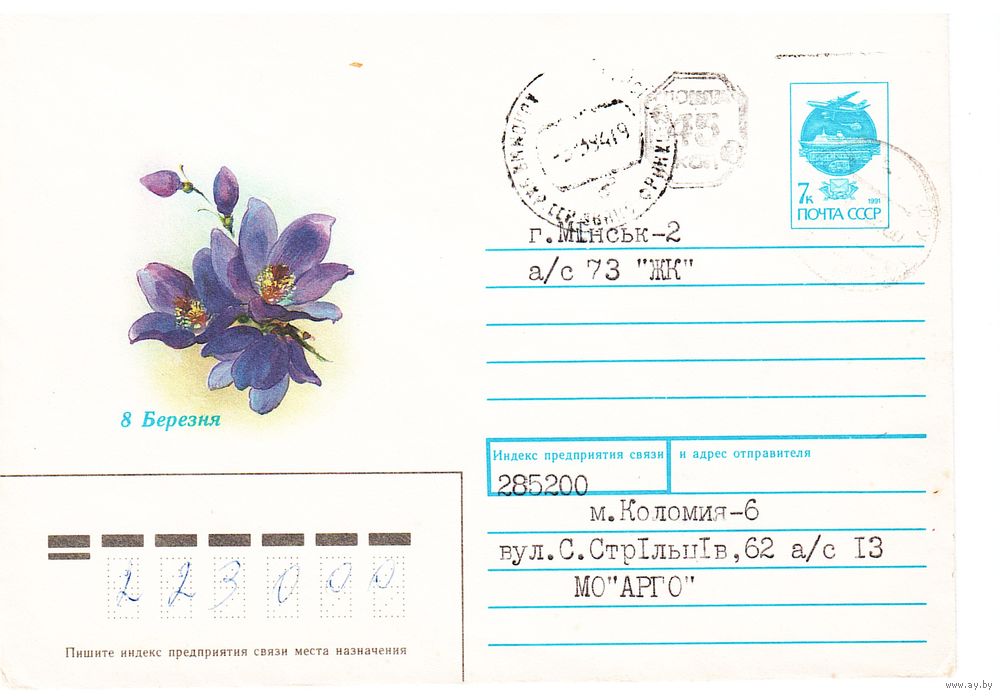 45
7к
1991
ПОЧТА СССР
г.МІнськ-2
а/с 73 "ЖК"
8 Березня
Индекс предприятия связи и адрес отправителя
285200
м.Коломия-6
вул.С.СтрІльцІв,62 а/с І3
МО"АРГО"
223000
Пишите индекс предприятия связи места назначения
www.ay.by